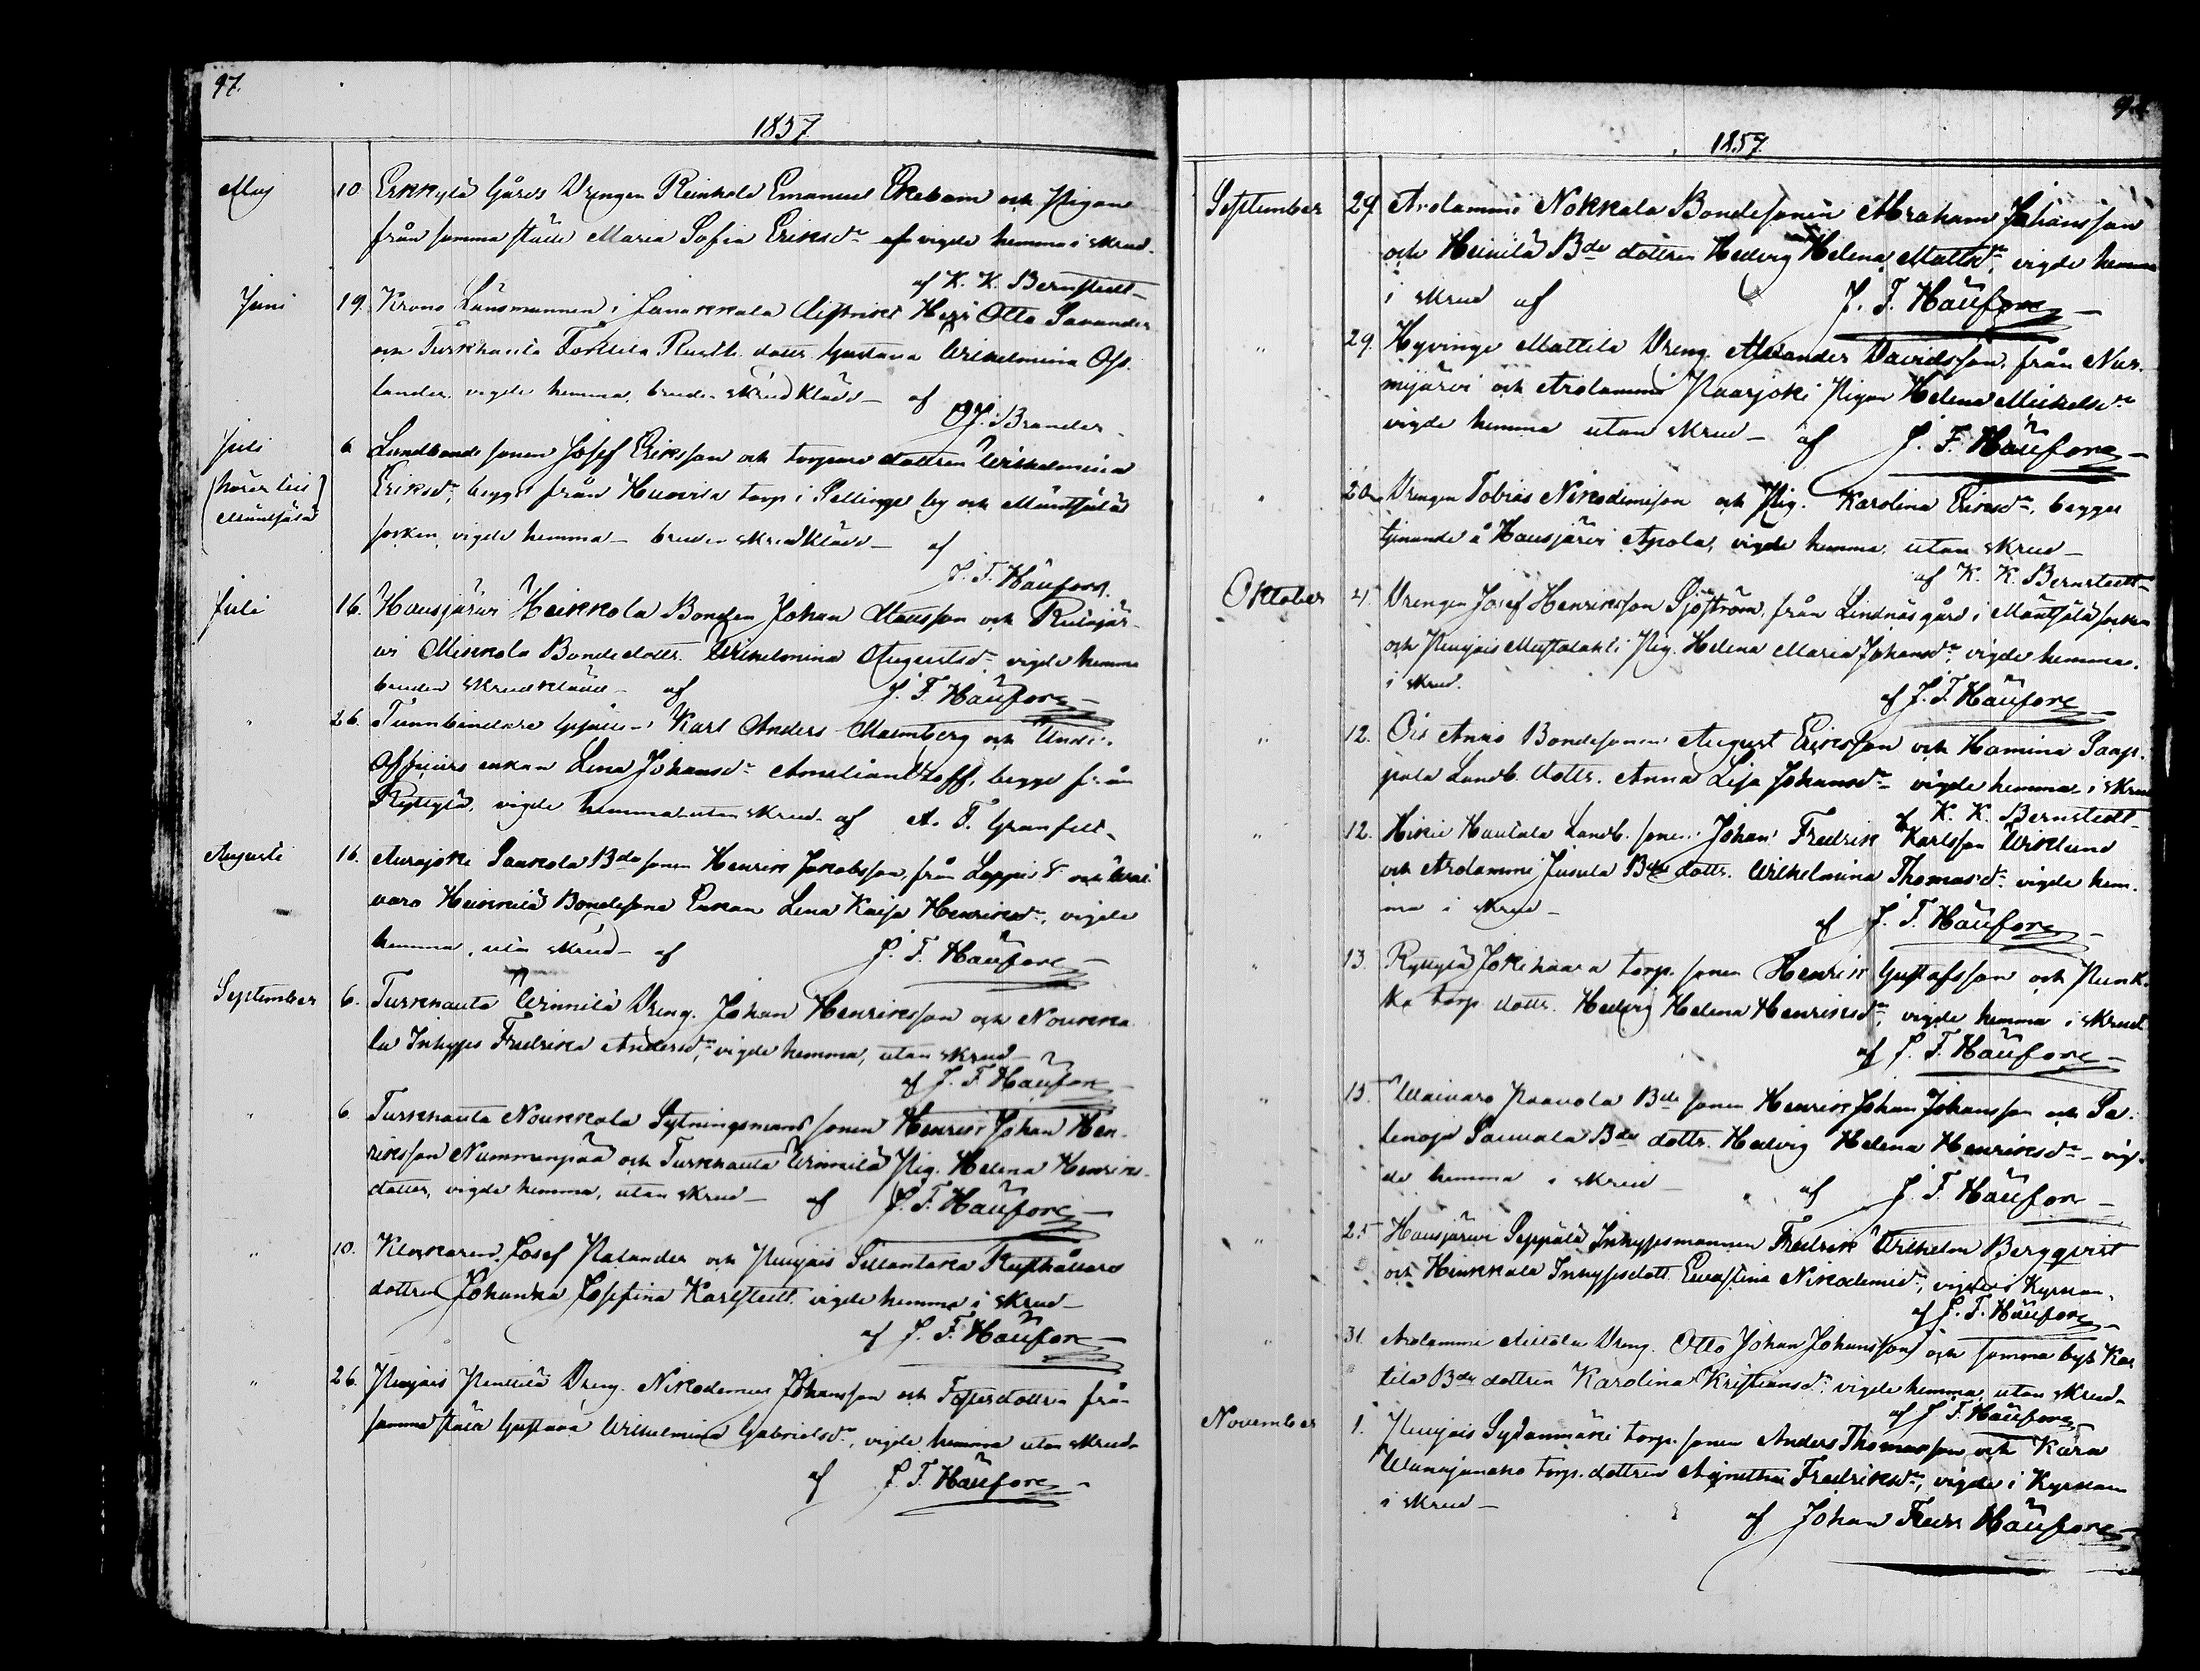 97.
1857
Maj 10 Erkkylä Gårds Drengen Reinhold Emanuel Ekebom och Pigan
från samma ställe Maria Sofia Eriksdr vigde hemma i skrud.
af K. K. Bernstedt
Juni 19. Krono Länsmannen i Janakkala District Herr Otto Savander
och Turkhauta Tortila Rusth. dottr. Gustava Wilhelmina
lander, vigde hemma, bruden skrudklädd af
Brander
Juli 6 Landbonde sonen Josef Eriksson och torpare dottren Wilhelmina
(hörer till Eriksdr, begge från Huovila torp i Sellinge by och Mäntsälä
Mäntsälä) socken, vigde hemma bruden skrudklädd af
J. F. Häufore
Juli 16. Hausjärvi Heikkola Bonden Johan Matsson och Ridasjär-
vi Mikkola Bonde dottr. Wilhelmina Augustsdr vigde hemma
bruden skrudklädd af J. F. Häufore
" 26. Tunnbindare Karl Anders Malmberg och Under
Officiers enkan Lena Johansdr begge från
Ryttylä, vigde hemma utan skrud af A. F. Granfelt
Augusti 16. Aurajoki Paukola Bde sonen Henrik Jakobsson, från Loppis S. och Wai-
vara Heikkilä Bondesons Enkan Lena Kaisa Henriksdr, vigde
hemma, utan skrud af J. F. Häufore
September 6. Turkhauta Winnilä Dreng. Johan Henriksson och Noukka
la Inhyses Fredrika Andersdr, vigde hemma, utan skrud
af J. F. Häufore
" 6 Turkhauta Noukkala Sytningsmans sonen Henrik Johan Hen-
riksson Nummenpää och Turkhauta Winnilä Pig. Helena Henriks-
dotter, vigde hemma, utan skrud af J. F. Häufore
" 10. Klockaren Josef Palander och Puujais Sillantaka Rusthållare
dottren Johanna Josefina Karlstedt vigde hemma i skrud
af J. F. Häufore
" 26. Puujais Penttilä Dreng. Nikodemus Johansson och Fosterdottren från
samma ställe Gustava Wilhelmina Gabrielsdr, vigde hemma utan skrud
af J. F. Häufore
1857.
September 29 Arolammi Nokkala Bondesonen Abraham Johansson
och Heinilä Bde dottren Hedvig Helena Mattsdr, vigde hemma
i skrud af J. F. Häufore
" 29. Hyvinge Mattila Dreng. Alexander Davidsson, från Nur-
mijärvi och Arolammi Paarjoki Pigan Helena Mickelsdr
vigde hemma utan skrud af J. F. Häufore
" 20. Drengen Tobias Nikodemison och Pig. Karolina Eriksdr, begge
tjenande å Hausjärvi Apola, vigde hemma utan skrud
af K. K. Bernstedt
Oktober 4. Drengen Josef Henriksson Sjöström från Lindnäs gård i Mäntsälä socken
och Puujais Mustalahti Pig. Helena Maria Johansdr, vigde hemma,
i skrud.
af J. F. Häufore
" 12. Ois Anno Bondesonen August Eriksson och Hamina Saap-
pala Landb. dottr. Anna Lisa Johansdr vigde hemma i skrud
af K. K. Bernstedt
" 12. Hikiä Hautala Landb. sonen Johan Fredrik Karlsson Wiklund
och Arolammi Jusula Bde dottr. Wilhelmina Thomasdr vigde hem-
ma i skrud
af J. F. Häufore
" 13. Ryttylä Jokihaara torp. sonen Henrik Gustafsson och Punk-
ka torp. dottr. Hedvig Helena Henriksdr, vigde hemma i skrud
af J. F. Häufore
" 15. Waivaro Paavola Bde sonen Henrik Johan Johansson och Sa-
lenoja Sauvala Bde dottr. Hedvig Helena Henriksdr vig-
de hemma i skrud af J. F. Häufore
" 25 Hausjärvi Seppälä Inhysesmannen Fredrik Wilhelm Bergqvist
och Hinkkala Inhysesdott. Evastina Nikodemidr, vigde i Kyrkan,
af J. F. Häufore
" 31. Arolammi Anttola Dreng. Otto Johan Johansson och samma bys Kar
tila Bde dottren Karolina Kristiansdr vigde hemma, utan skrud
af J. F. Häufore
November 1. Puujais Sydänmäki torp. sonen Anders Thomasson och Kara
Wanajanoho torp. dottren Agnetha Fredriksdr, vigde i Kyrkan
i skrud
af Johan Fredr Häufore